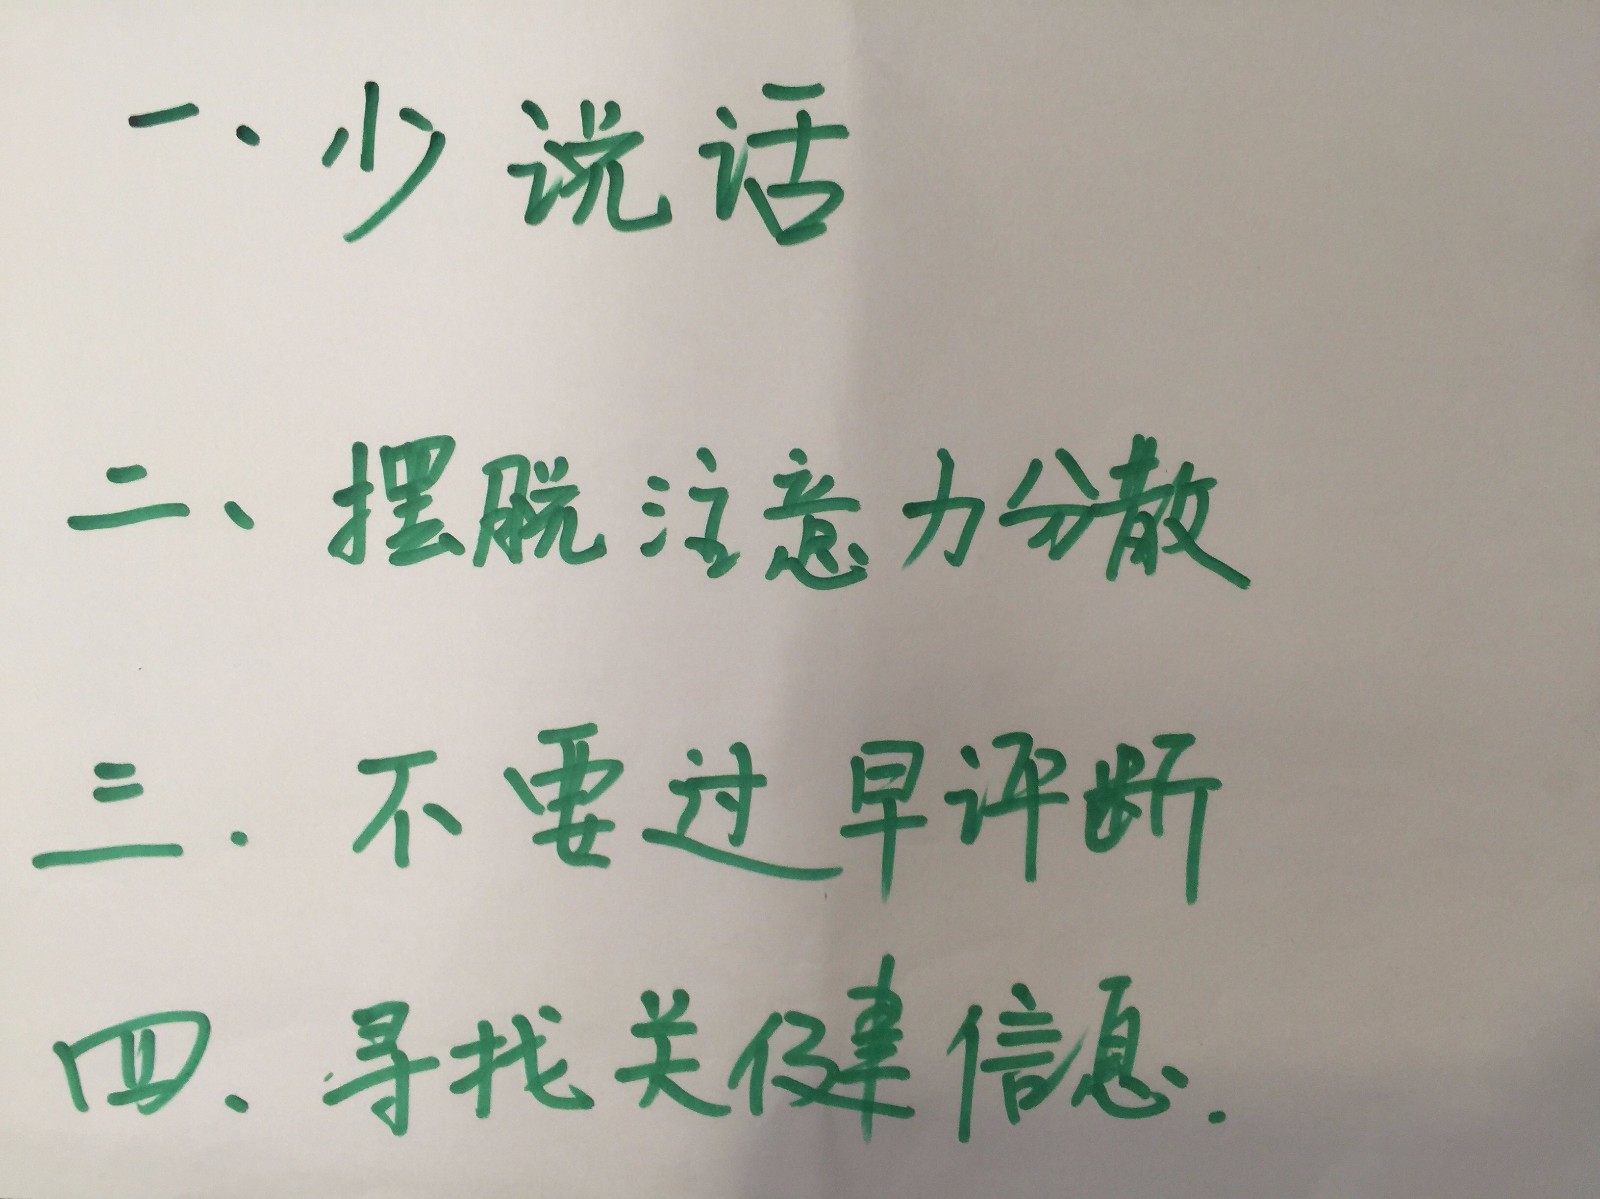 一、少说话
二、摆脱注意力分散
三.不要过早评断
四、寻找关健信息.